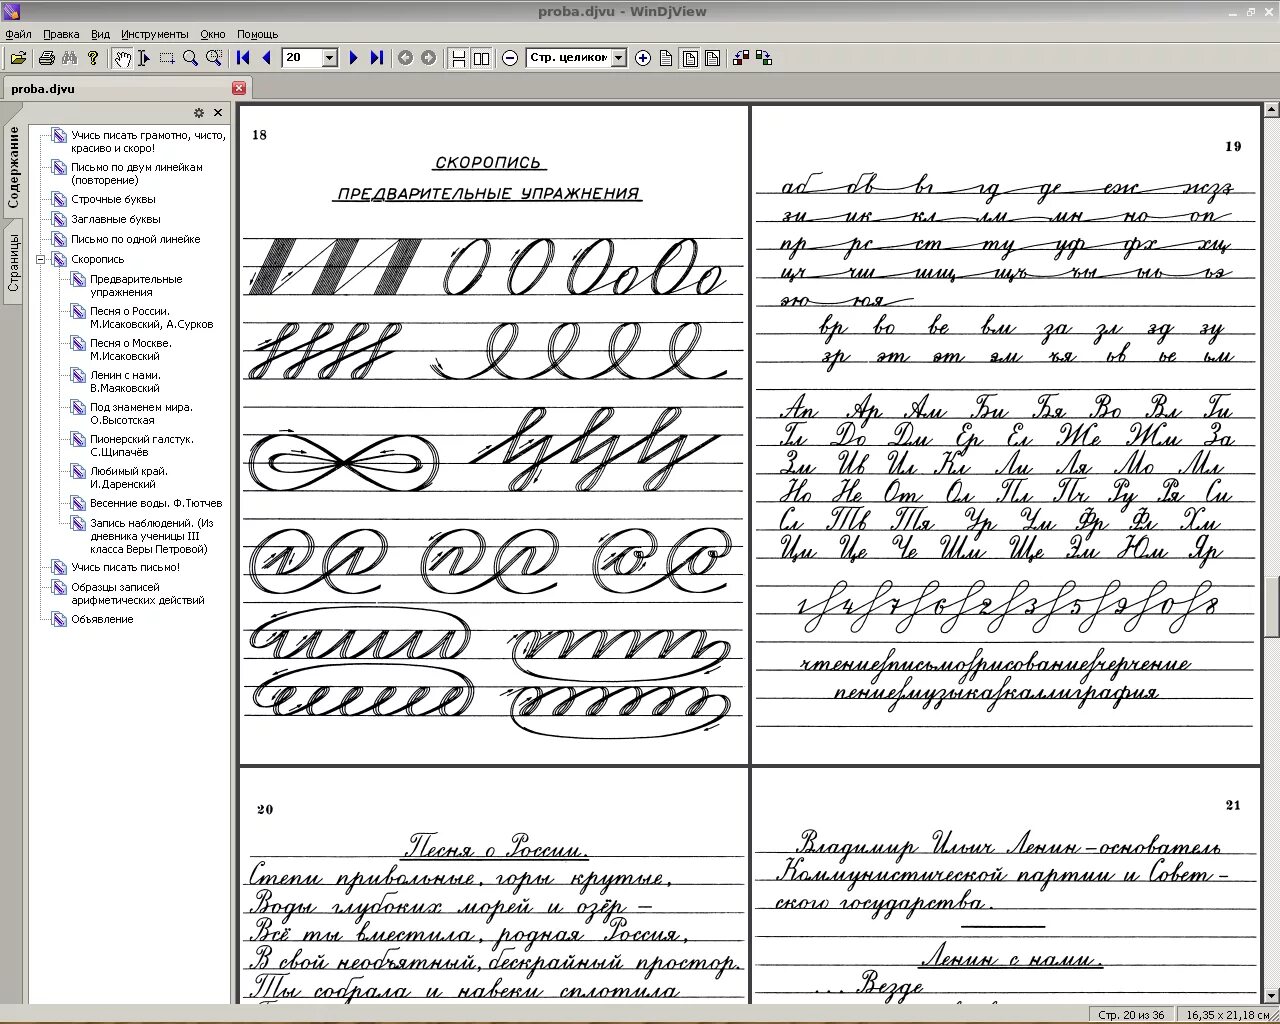 proba.djvu - WinDjView
Файл Правка Вид Инструменты Окно Помощь
20 Стр. целиком
proba.djvu
Содержание
Страницы
Учись писать грамотно, чисто,
красиво и скоро!
Письмо по двум линейкам
(повторение)
Строчные буквы
Заглавные буквы
Письмо по одной линейке
Скоропись
Предварительные
упражнения
Песня о России.
М.Исаковский, А.Сурков
Песня о Москве.
М.Исаковский
Ленин с нами.
В.Маяковский
Под знаменем мира.
О.Высотская
Пионерский галстук.
С.Щипачёв
Любимый край.
И.Даренский
Весенние воды. Ф.Тютчев
Запись наблюдений. (Из
дневника ученицы III
класса Веры Петровой)
Учись писать письмо!
Образцы записей
арифметических действий
Объявление
18
СКОРОПИСЬ
ПРЕДВАРИТЕЛЬНЫЕ УПРАЖНЕНИЯ
19
аб бв вг гд де еж жзэ
зи ик кл лм мн но оп
пр рс ст ту уф фх хц
цч чш шщ щъ ъы ыь ьэ
эю юя
вр во ве вм за зл зд зу
зр эт эт ям ъя ьв ье ьм
Ап Ар Ам Би Бя Во Вл Ги
Гл До Дм Ер Ел Же Жм За
Зм Ив Ил Кл Ли Ля Мо Мл
Но Не От Ол Пл Пч Ру Ря Си
Сл Тв Тя Ур Ум Фр Фл Хм
Ци Це Че Шм Ще Эм Юм Яр
1 4 7 6 2 3 5 9 0 8
чтение письмо рисование черчение
пение музыка каллиграфия
20
Песня о России.
Степи привольные, горы крутые,
Воды глубоких морей и озёр –
Всё ты вместила, родная Россия,
В свой необъятный, бескрайный простор.
Ты собрала и навеки сплотила
21
Владимир Ильич Ленин – основатель
Коммунистической партии и Совет-
ского государства.
Ленин с нами.
... Везде
Стр. 20 из 36 16,35 x 21,18 см